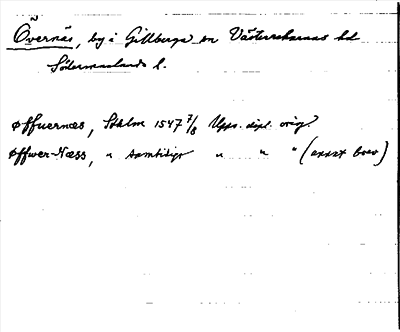 Övernäs, by i Gillberga sn Västerrekarnas hd
Södermanlands l.
Øffuernæs, Sthlm 1547 7/8 Upps. dipl. orig.
Øffwer-Næss, " samtidigt " " " (annat brev)